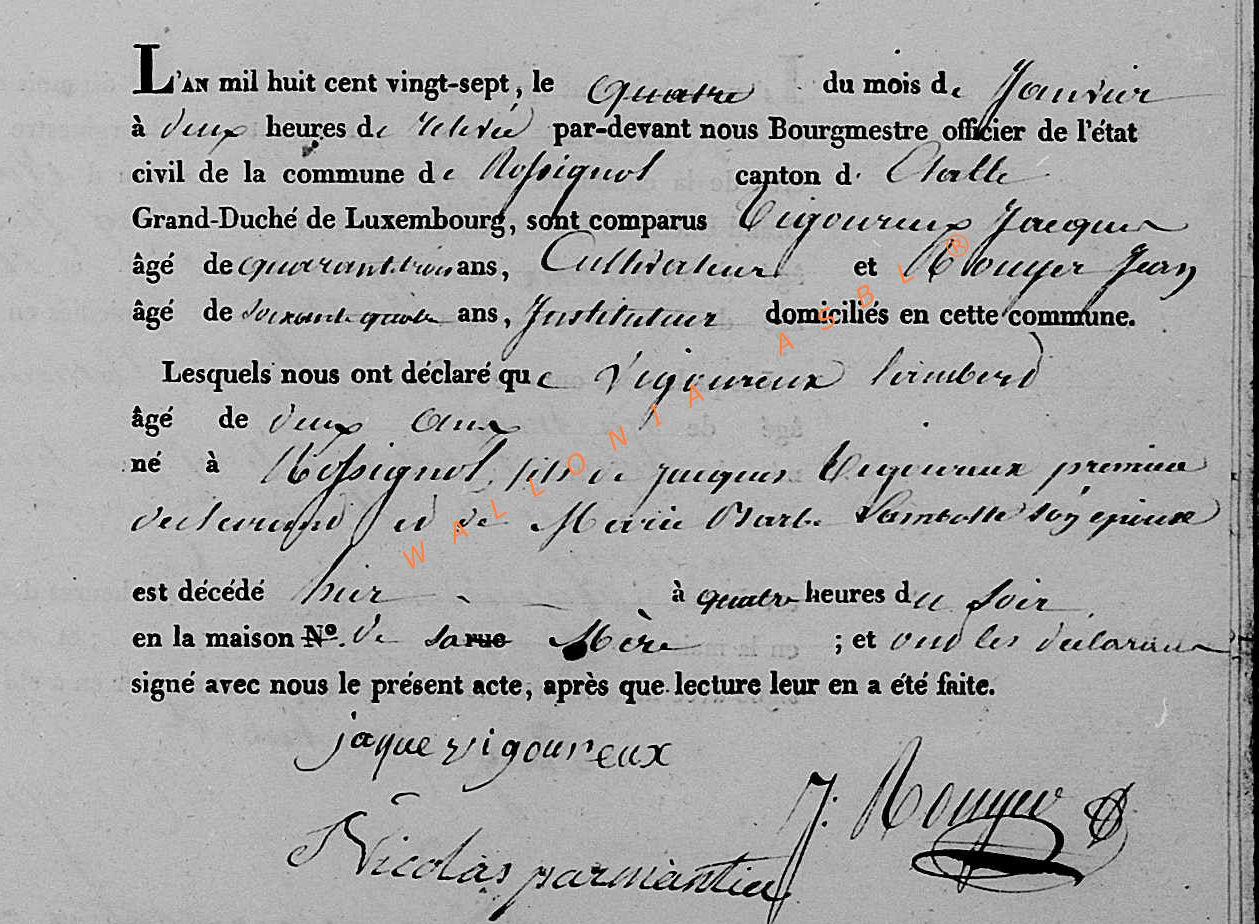 L'AN mil huit cent vingt-sept, le quatre du mois de Janvier
à deux heures de relevée par-devant nous Bourgmestre officier de l'état
civil de la commune de Rossignol canton d' Etalle
Grand-Duché de Luxembourg, sont comparus Vigoureux Jacques
âgé de quarante trois ans, Cultivateur et Rouyer Jean
âgé de soixante quatre ans, Instituteur domiciliés en cette commune.
Lesquels nous ont déclaré que Vigoureux Lambert
âgé de deux ans
né à Rossignol, fils de jacques Vigoureux premier
declarant et de Marie Barbe son épouse
est décédé hier à quatre heures du soir
en la maison N°. de sa rue Mère ; et ont les déclarants
signé avec nous le présent acte, après que lecture leur en a été faite.
jaque vigoureux
J: Rouyer
Nicolas parmantier
WALLONIA ASBL ®